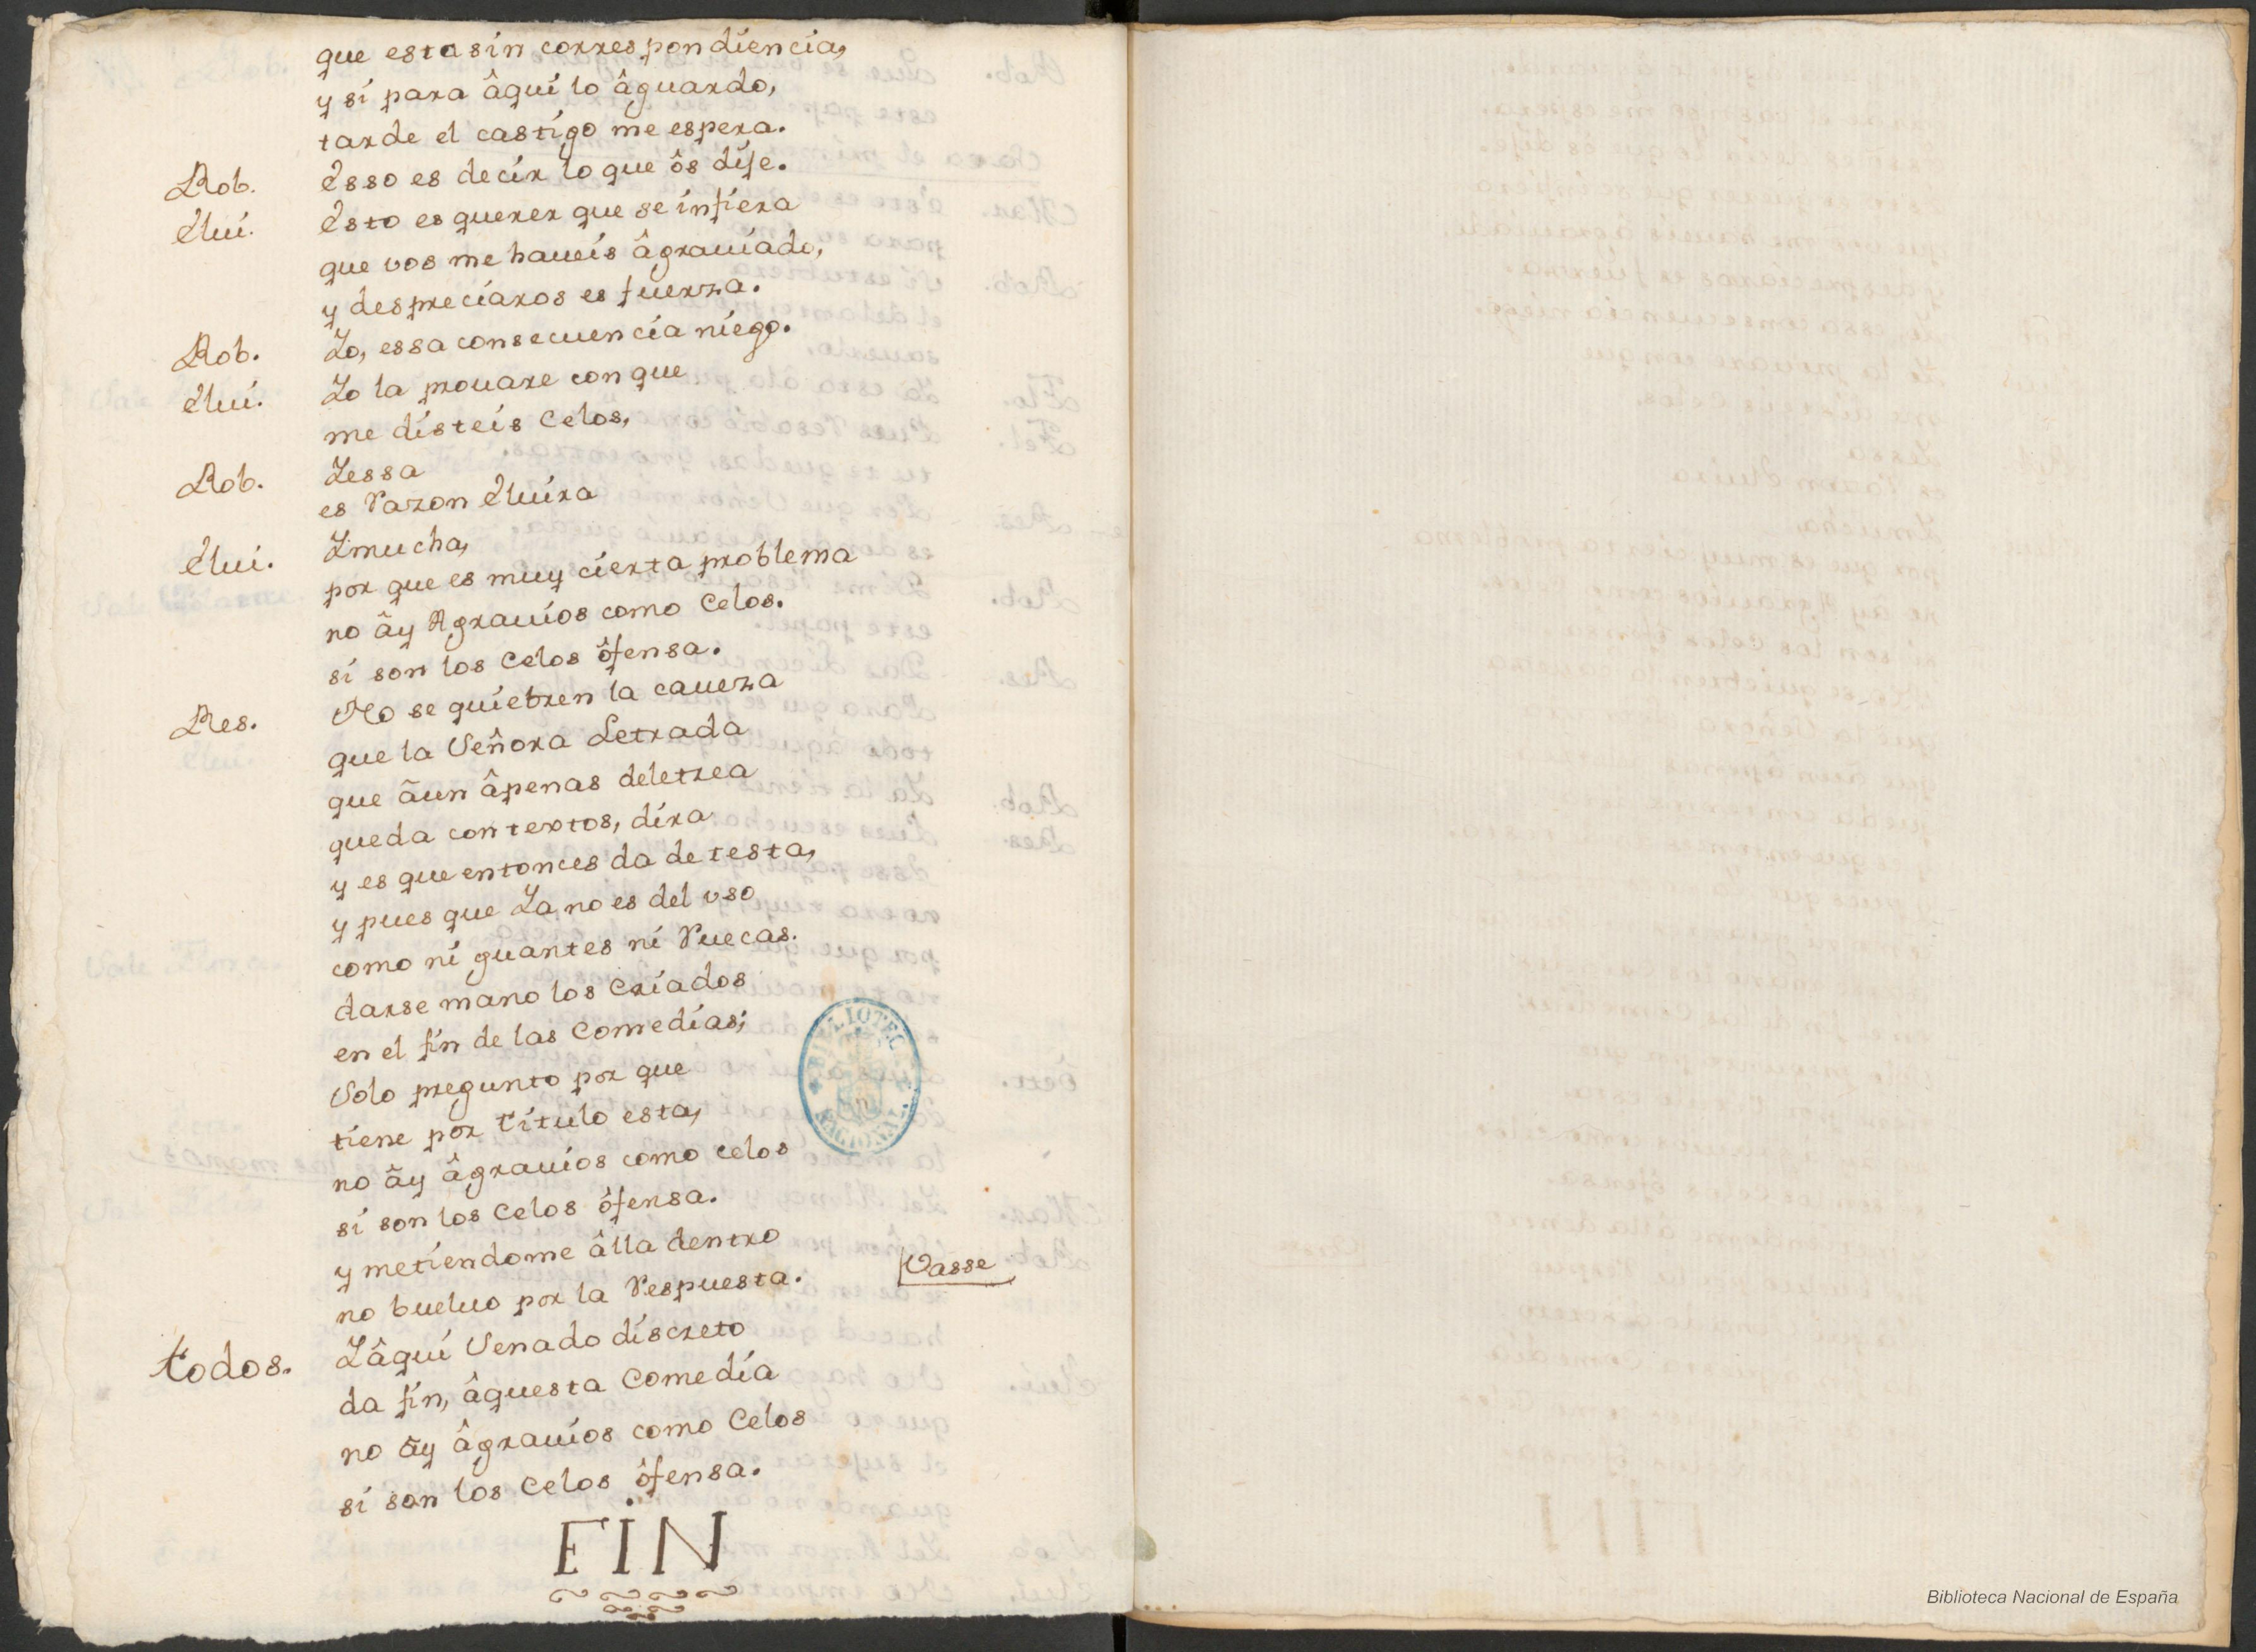 que esta sin correspondiencia,
y si para âqui lo âguardo,
tarde el castigo me espera.
Rob. Esso es decir lo que ôs dije.
Elui. Esto es querer que se infiera
que vos me haueis âgrauiado,
y despreciaros es fuerza.
Rob. Yo, essa consecuencia niego.
Elui. Yo la prouare con que
me disteis Celos,
Rob. Yessa
es Razon Eluira
Elui. Ymucha,
por que es muy cierta problema
no ây Agrauios como Celos.
si son los Celos ôfensa.
Res. No se quiebren la caueza
que la Señora Letrada
que ãun âpenas deletrea
queda con textos, dira
y es que entonces da de testa,
y pues que Ya no es del vso
como ni guantes ni Ruecas.
darse mano los Criados
en el fin de las Comedias;
Solo pregunto por que
tiene por titulo esta,
no ãy âgrauios como celos
si son los Celos ôfensa.
y metiendome âlla dentro
no bueluo por la Respuesta. Vasse
todos. Yâqui Senado discreto
da fin, âquesta Comedia
no ãy âgrauios como Celos
si son los Celos ôfensa.
FIN
BIBLIOTECA NACIONAL
Biblioteca Nacional de España